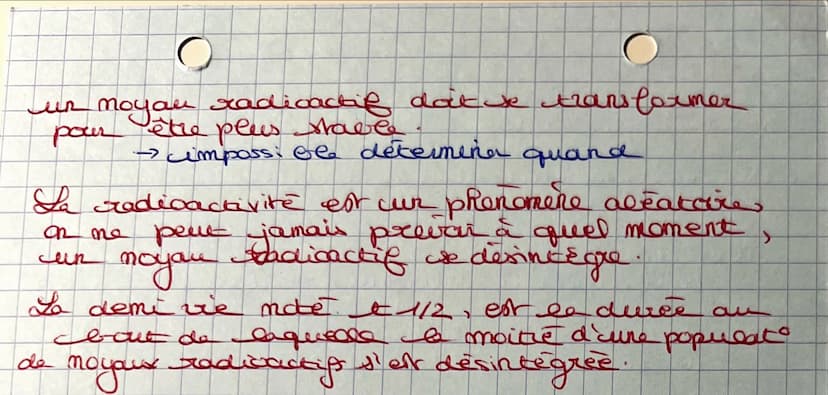 un noyau radioactif doit se transformer
pour être plus stable.
→ impossible déterminer quand
La radioactivité est un phénomène aléatoire,
on ne peut jamais prévoir à quel moment,
un noyau radioactif se désintègre.
La demi vie noté t 1/2, est la durée au
bout de laquelle la moitié d'une populat°
de noyaux radioactifs s'est désintégrée.